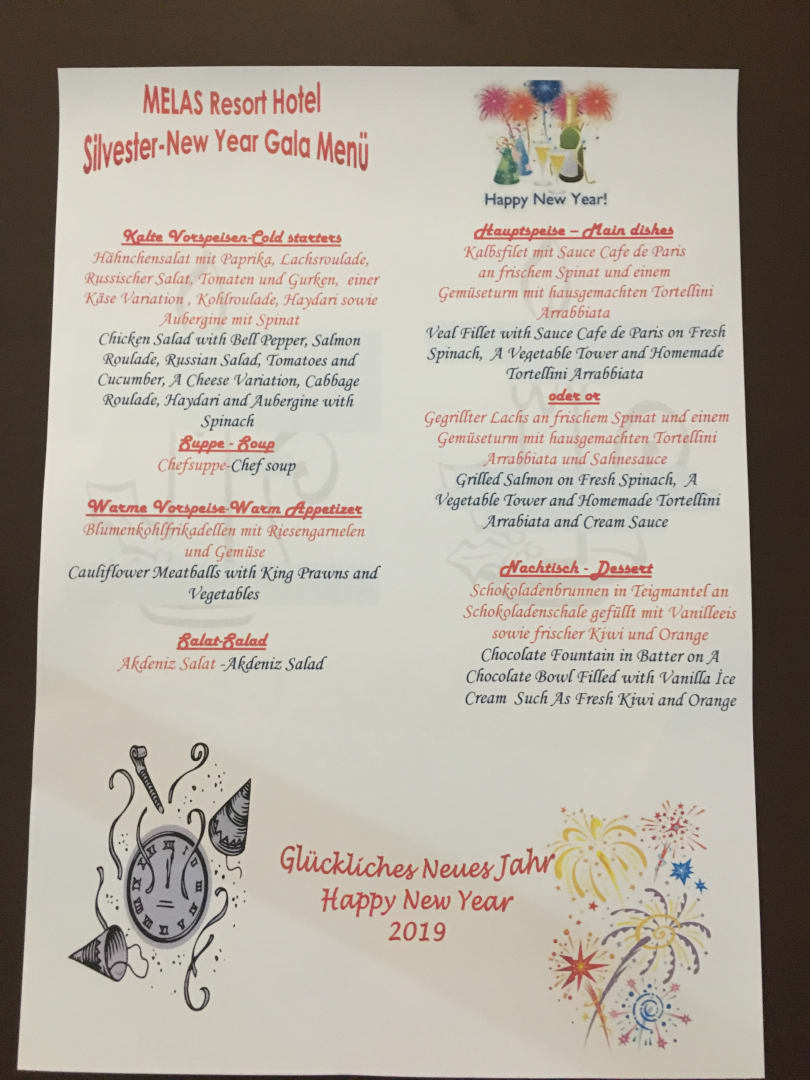 MELAS Resort Hotel
Silvester-New Year Gala Menü
Kalte Vorspeisen-Cold starters
Hähnchensalat mit Paprika, Lachsroulade,
Russischer Salat, Tomaten und Gurken, einer
Käse Variation , Kohlroulade, Haydari sowie
Aubergine mit Spinat
Chicken Salad with Bell Pepper, Salmon
Roulade, Russian Salad, Tomatoes and
Cucumber, A Cheese Variation, Cabbage
Roulade, Haydari and Aubergine with
Spinach
Suppe - Soup
Chefsuppe-Chef soup
Warme Vorspeise-Warm Appetizer
Blumenkohlfrikadellen mit Riesengarnelen
und Gemüse
Cauliflower Meatballs with King Prawns and
Vegetables
Salat-Salad
Akdeniz Salat -Akdeniz Salad
Happy New Year!
Hauptspeise – Main dishes
Kalbsfilet mit Sauce Cafe de Paris
an frischem Spinat und einem
Gemüseturm mit hausgemachten Tortellini
Arrabbiata
Veal Fillet with Sauce Cafe de Paris on Fresh
Spinach, A Vegetable Tower and Homemade
Tortellini Arrabbiata
oder or
Gegrillter Lachs an frischem Spinat und einem
Gemüseturm mit hausgemachten Tortellini
Arrabbiata und Sahnesauce
Grilled Salmon on Fresh Spinach, A
Vegetable Tower and Homemade Tortellini
Arrabiata and Cream Sauce
Nachtisch - Dessert
Schokoladenbrunnen in Teigmantel an
Schokoladenschale gefüllt mit Vanilleeis
sowie frischer Kiwi und Orange
Chocolate Fountain in Batter on A
Chocolate Bowl Filled with Vanilla İce
Cream Such As Fresh Kiwi and Orange
Glückliches Neues Jahr
Happy New Year
2019